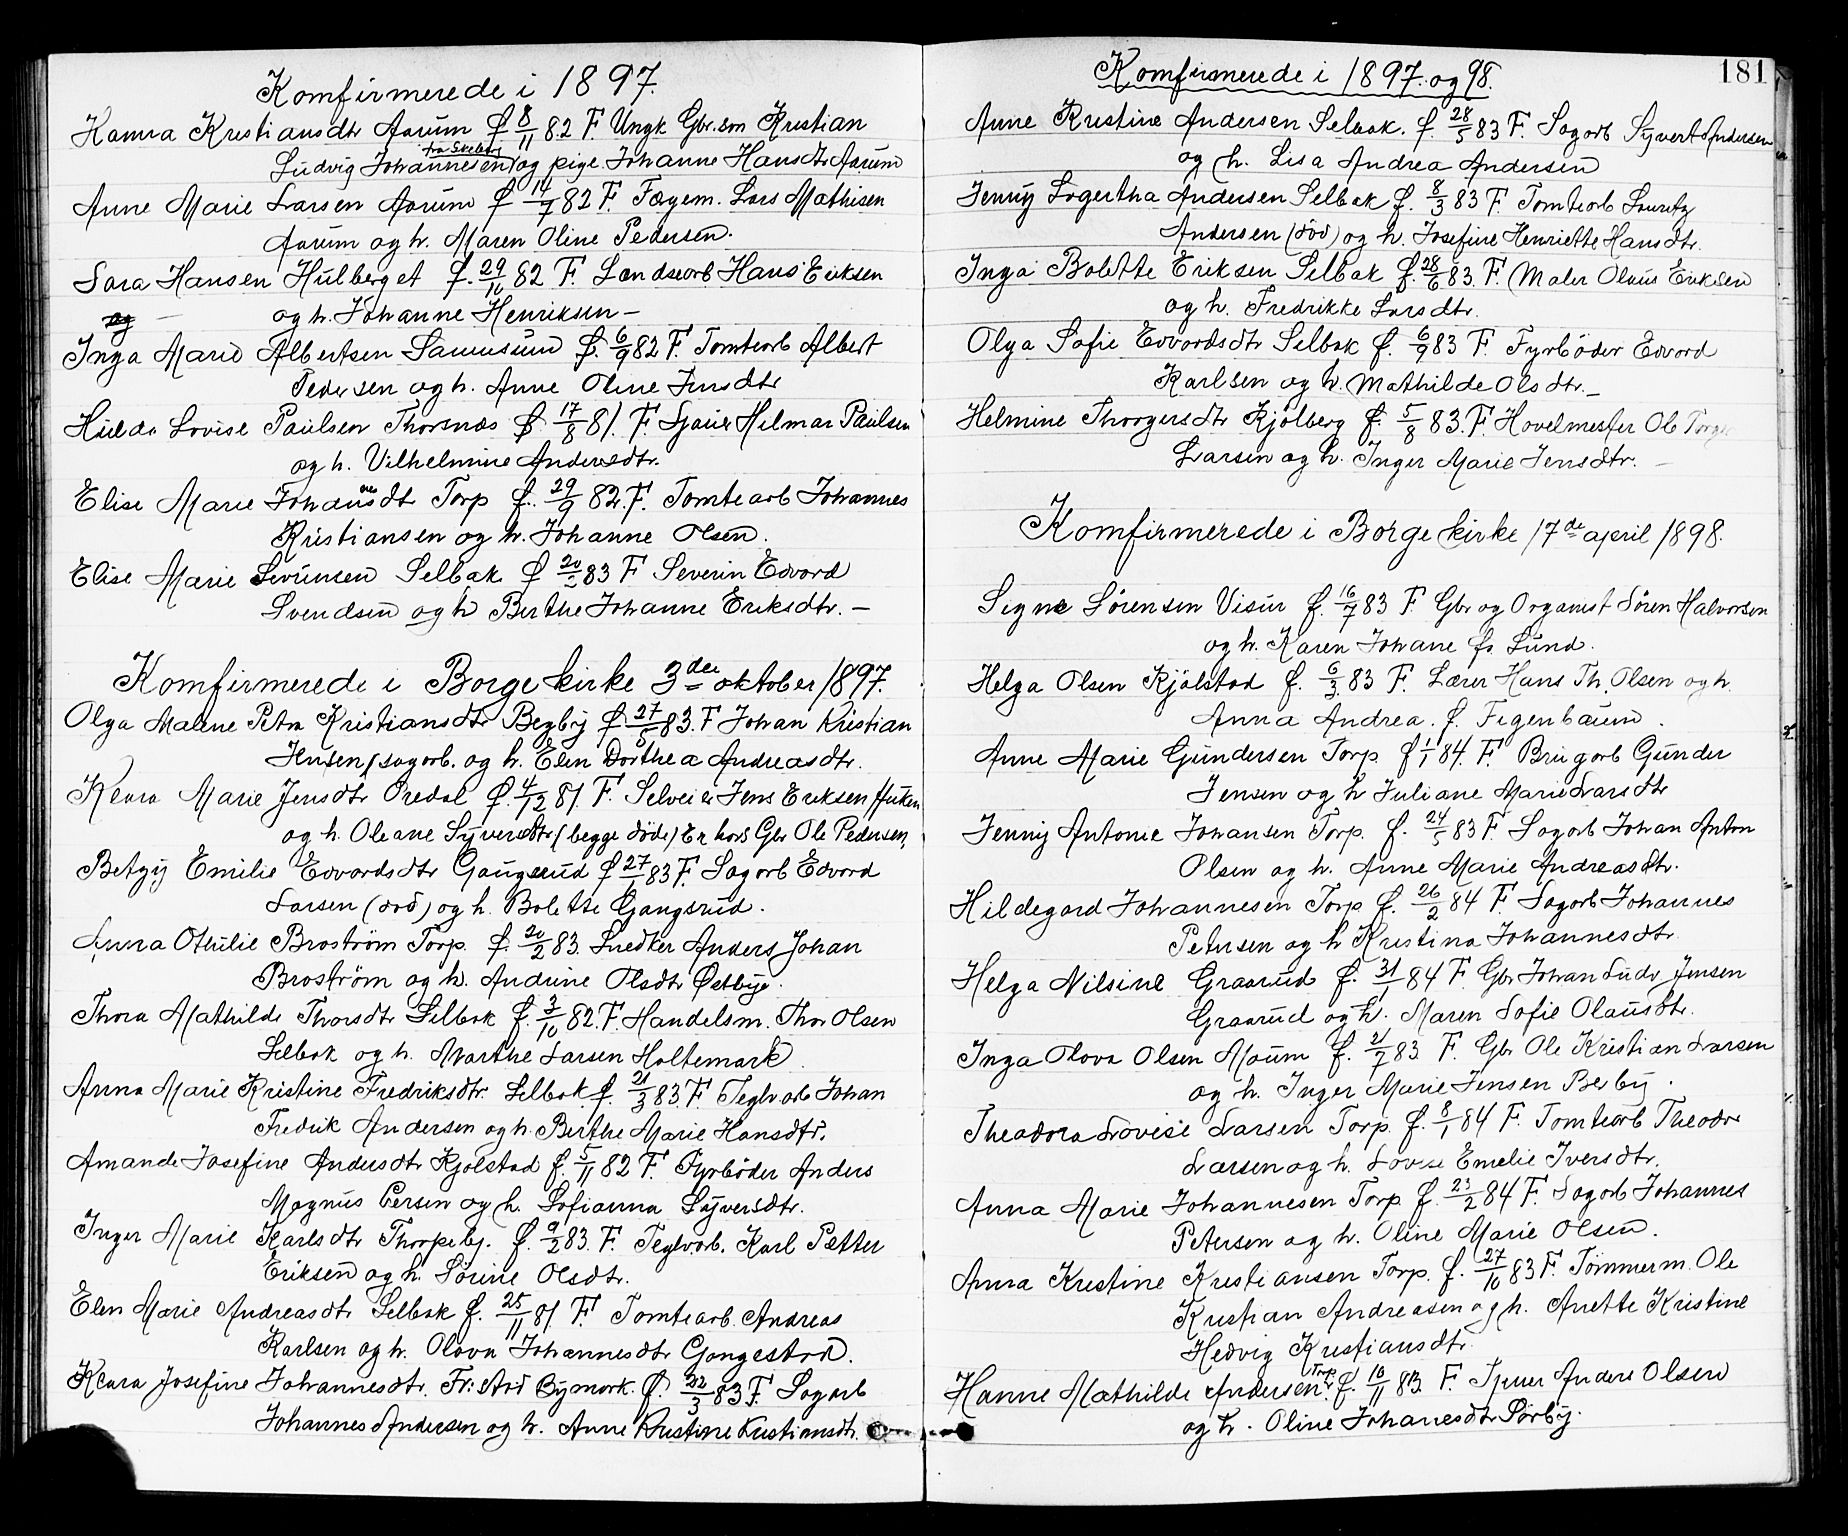 Komfirmerede i 1897.
Hanna Kristiansdtr Aarum f 8/11 82 F Ungk Gbr.søn Kristian
fra Skeberg
Ludvig Johannesen og pige Johanne Hansdtr Aarum
Anne Marie Larsen Aarum f 14/7 82 F. Fægem. Lars Mathisen
Aarum og h. Maren Oline Pedersen.
Sara Hansen Hulberget f. 29/10 82 F. Landseorb Hans Eriksen
og h. Johanne Henriksen –
Inga Marie Albertsen f. 6/9 82 F. Tomtearb Albert
Pedersen og h. Anne Oline Jensdtr
Hilda Lovise Paulsen Thorsnæs f 17/8 81. F. Hilmar Paulsen
og h. Vilhelmine Andersdtr.
Elise Marie Johannesdtr Torp f. 29/9 82. F. Tomtearb Johannes
Kristiansen og h. Johanne Olsen.
Elise Marie Sevrinsen Selbak f 83 F Severin Edvard
Svendsen og h Berthe Johanne Eriksdtr. –
Komfirmerede i Borge kirke 3die oktober 1897.
Olga Malene Petra Kristiansdtr Begby f 27/5 83. F Johan Kristian
Jensen, sagarb. og h. Elen Dorthea Andreasdtr.
Klara Marie Jensdtr Oredal f. 4/12 81. F. Selveier Jens Eriksen
og h. Oleane Syversdtr (begge døde) Er hos Gbr Ole Pedersen,
Betzy Emilie Edvardsdtr Gaugsrud f 27/1 83 F. Sagarb Edvard
Larsen (død) og h. Bolette Gangsrud.
Anna Othilie Broström Torp. f. 20/2 83. Snedker Anders Johan
Broström og h. Andrine Olsdtr Østbye.
Thora Mathilde Thorsdtr Selbak f. 3/10 82. F. Handelsm. Thor Olsen
Selbak og h. Marthe Larsen Holtemark
Anna Marie Kristine Fredriksdtr. Selbak f. 21/3 83. F. Teglvarb Johan
Fredrik Andersen og h. Berthe Marie Hansdtr.
Amanda Josefine Andersdtr Kjølstad f. 5/11 82 F. Fyrbøder Anders
Magnus Persen og h. Sofianna Syversdtr.
Inger Marie Karlsdtr Thorpeby. f. 9/2 83. F. Teglvarb. Karl Petter
Eriksen og h. Sørine Olsdtr.
Elen Marie Andreasdtr Selbak f. 25/11 81 F. Tomtearb. Andreas
Karlsen og h. Olava Johannesdtr Gangestad.
Klara Josefine Johannesdtr. Fr:stad Bymark. f. 22/3 83 F. Sagarb
Johannes Andersen og h. Anne Kristine Kristiansdtr.
181
Komfirmerede i 1897. og 98.
Anne Kristine Andersen Selbak. f. 28/5 83 F. Sagarb Syvert Andersen
og h. Lisa Andrea Andersen
Jenny Lagertha Andersen Selbak f. 8/3 83 F. Tomtearb Lauritz
Andersen (død) og h. Josefine Henriette Hansdtr.
Inga Bolette Eriksen Selbak f. 28/6 83. F. Maler Olaus Eriksen
og h. Fredrikke Larsdtr.
Olga Sofie Edvardsdtr Selbak f. 6/9 83 F. Fyrbøder Edvard
Karlsen og h. Mathilde Olsdtr. –
Helmine Thorgersdtr Kjølberg f. 5/8 83. F. Hovelmester Ole Torger
Larsen og h. Inger Marie Jensdtr. –
Komfirmerede i Borge kirke 17de april 1898.
Signe Sørensen Visur f. 16/7 83 F. Gbr og Organist Sören Halvorsen
og h. Karen Johane f. Lund.
Helga Olsen Kjølstad f. 6/3 83 F. Lærer Hans Th. Olsen og h.
Anna Andrea. f. Figenbaum.
Anne Marie Gundersen Torp f 1/1 84. F. Brugarb Gunder
Jensen og h Juliane Marie Larsdtr
Jenny Antonie Johansen Torp. f. 24/5 83 F. Sagarb Johan Anton
Olsen og h. Anne Marie Andreasdtr.
Hildegard Johannesen Torp f. 26/2 84 F. Sagarb Johannes
Petersen og h Kristina Johannesdtr
Helga Nilsine Graarud f. 31/1 84 F. Gbr Johan Ludv Jensen
Graarud og h. Maren Sofie Olausdtr.
Inga Olava Olsen Moum f. 21/7 83 F. Gbr Ole Kristian Larsen
og h. Inger Marie Jensen Begby.
Theodora Lovise Larsen Torp. f. 8/1 84 F. Tomtearb Theodor
Larsen og h. Lovise Emelie Iversdtr.
Anna Marie Johannesen Torp. f. 23/2 84 F. Sagarb Johannes
Petersen og h. Oline Marie Olsen.
Anna Kristine Kristiansen Torp. f. 27/10 83 F. Tømmerm. Ole
Kristian Andreasen og h. Anette Kristine
Hedvig Kristiansdtr.
Torp
Hanne Mathilde Andersen. f. 16/11 83. F. Anders Olsen
og h. Oline Johanesdtr Sørby.